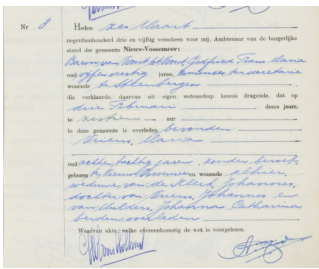 Nr 8 Heden zes Maart
negentienhonderd drie en vijftig verscheen voor mij, Ambtenaar van de burgerlijke
stand der gemeente Nieuw-Vossemeer:
Godfried Frans Maria
oud vijf en veertig jaren,
wonende te Steenbergen
die verklaarde, daarvan uit eigen wetenschap kennis dragende, dat op
drie Februari dezes jaars,
te zestien uur
in deze gemeente is overleden bevonden
Vriens, Maria
oud achten tachtig jaren zonder beroep,
geboren te Nieuw-Vossemeer wonende alhier,
weduwe van de Klerck Johannes,
dochter van Vriens, Johannes en
van Mulders, Johanna Catharina
beiden overleden
Waarvan akte, welke overeenkomstig de wet is voorgelezen.